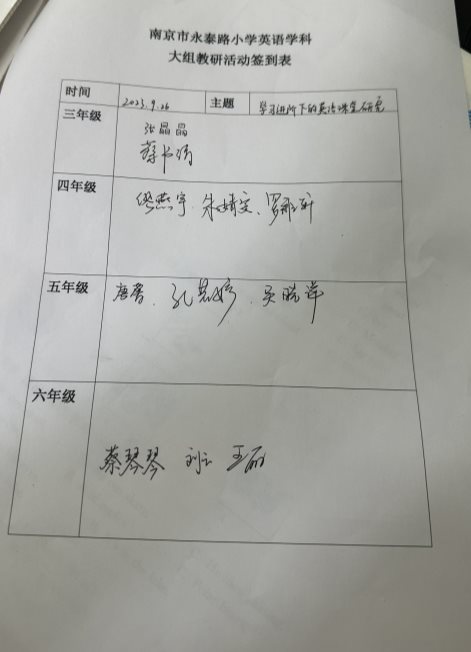 南京市永泰路小学英语学科
大组教研活动签到表
时间 2023.9.26 主题 学习进阶下的英语课堂研究
三年级 张晶晶
四年级 缪燕宇、朱婧雯、
五年级 唐蕾、孔慧婷、吴晓萍
六年级 蔡琴琴 王丽